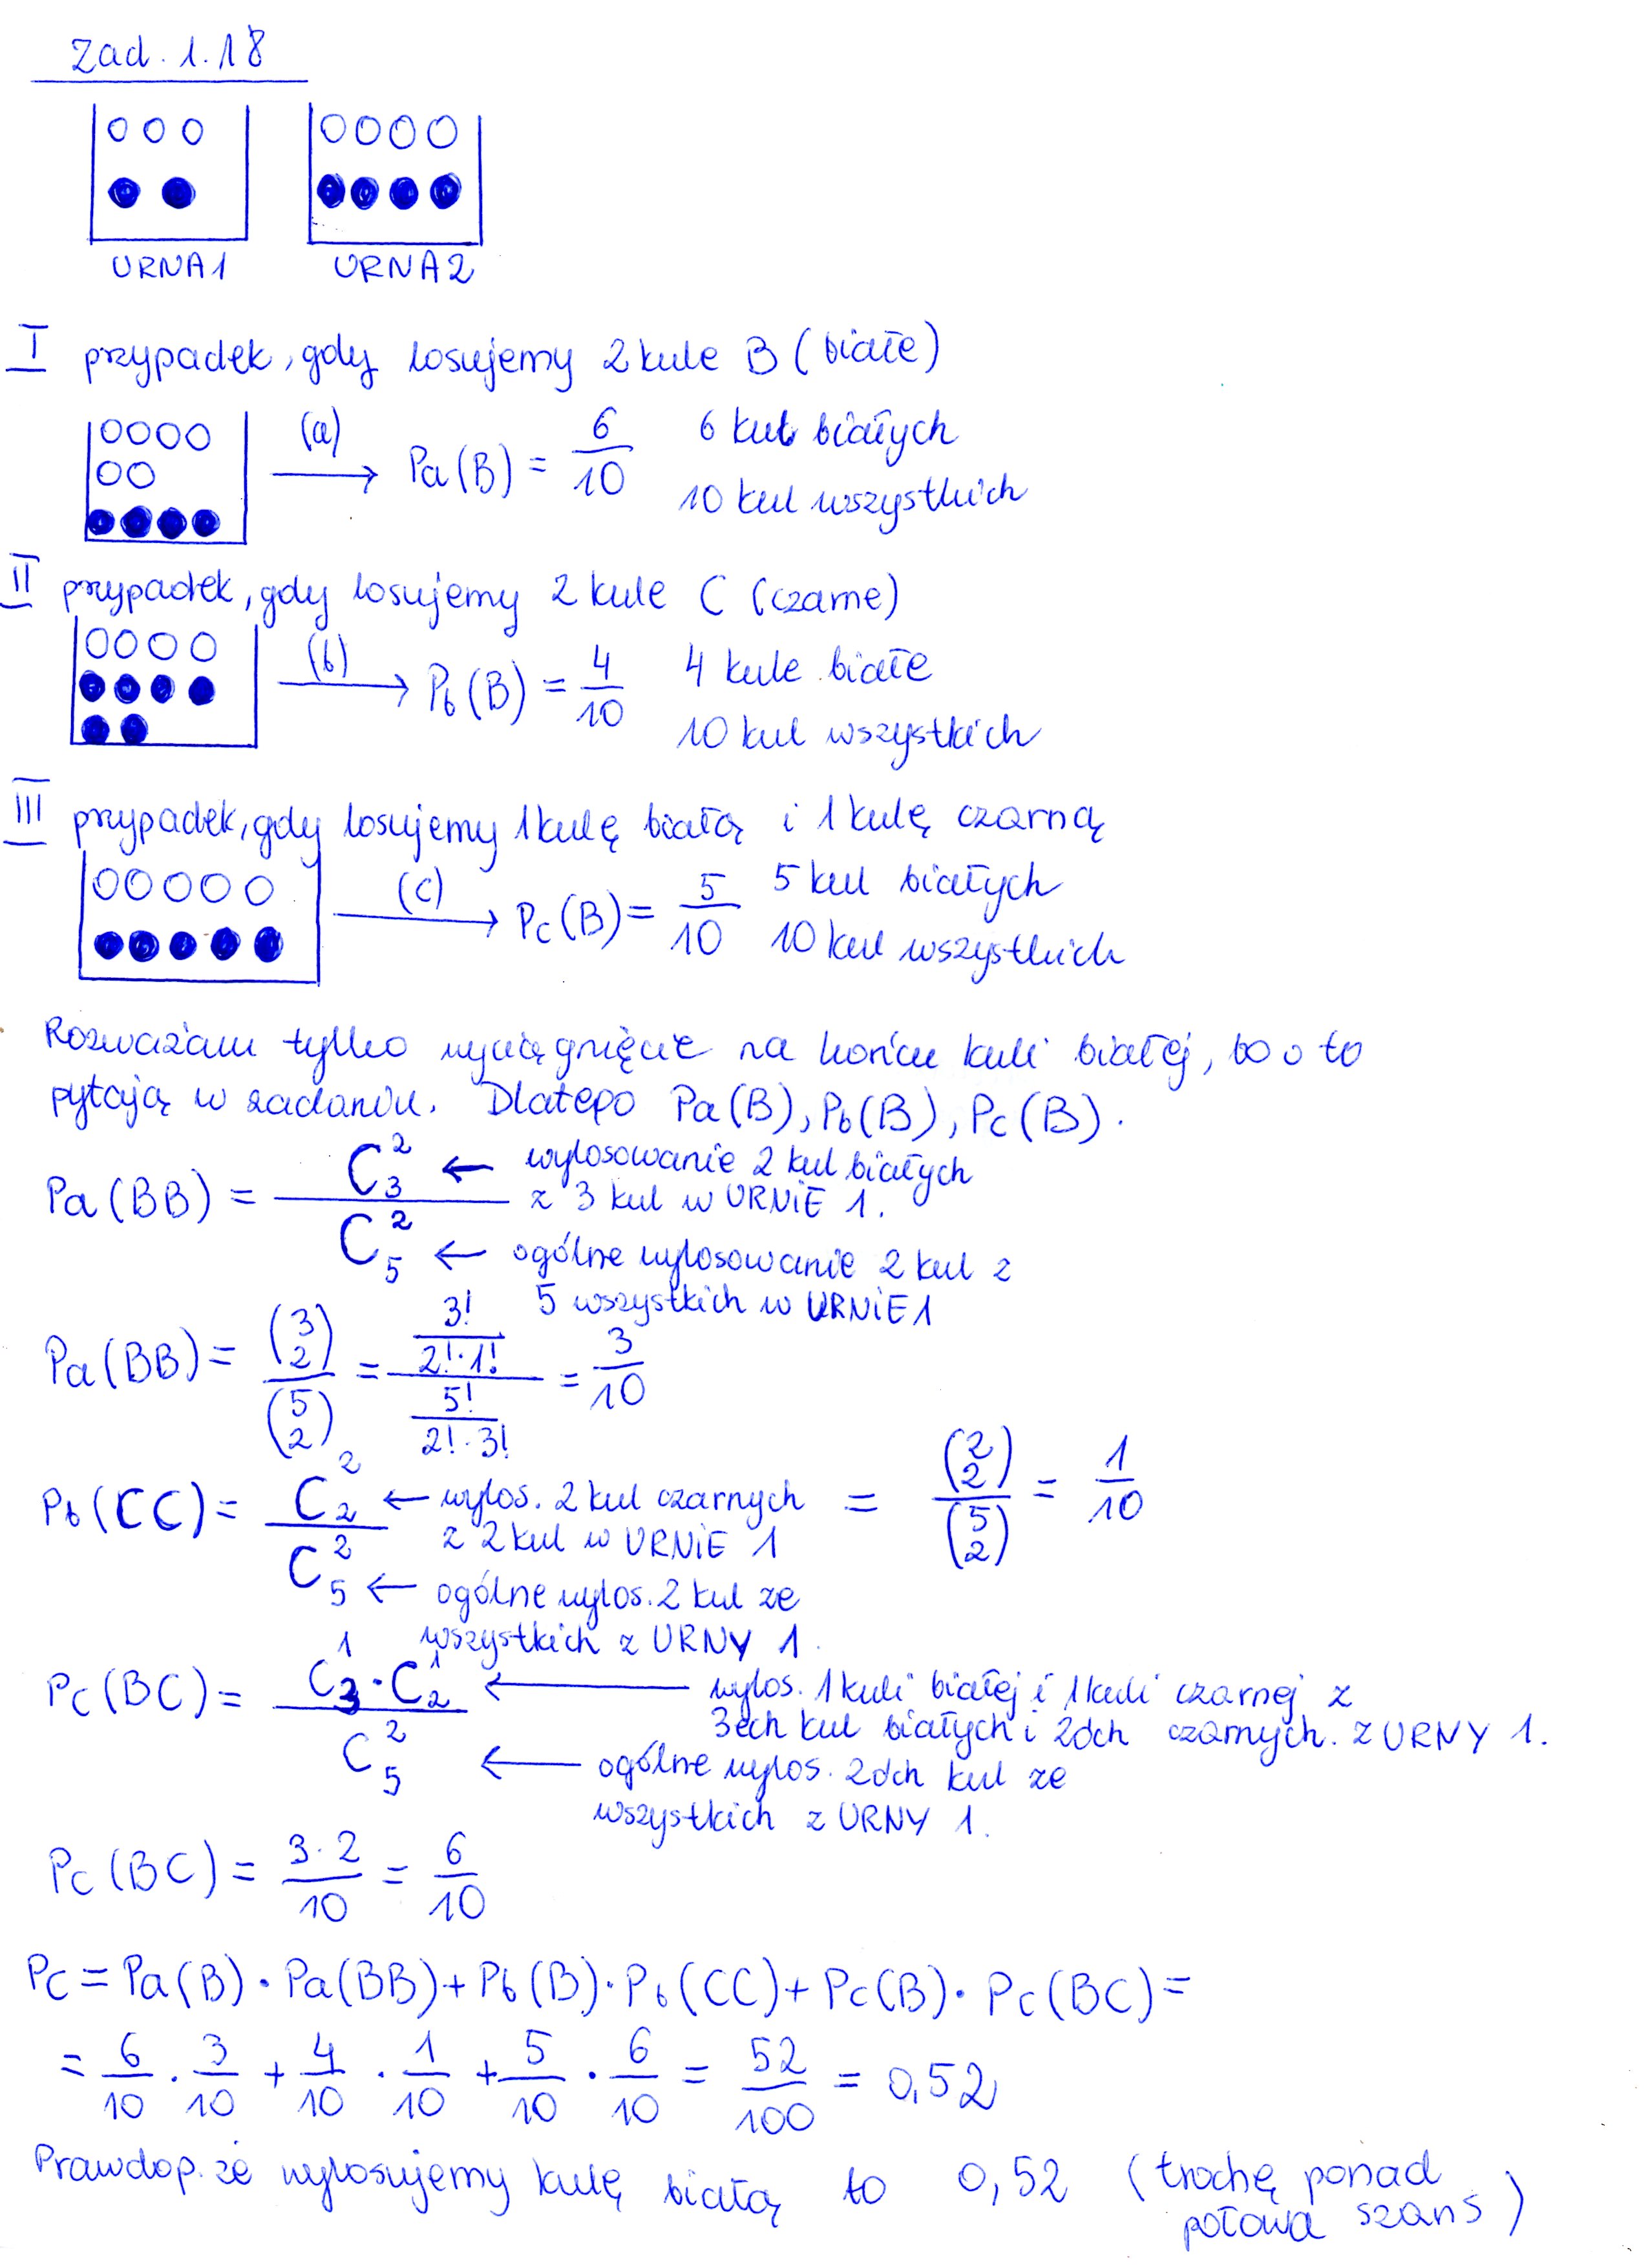 Zad. 1.18
URNA1 URNA2
I przypadek, gdy losujemy 2 kule B (białe)
(a) Pa(B) = 6/10 6 kul białych
10 kul wszystkich
II przypadek, gdy losujemy 2 kule C (czarne)
(b) Pb(B) = 4/10 4 kule białe
10 kul wszystkich
III przypadek, gdy losujemy 1 kulę białą i 1 kulę czarną
(c) Pc(B) = 5/10 5 kul białych
10 kul wszystkich
Rozważam tylko wyciągnięcie na końcu kuli białej, bo o to
pytają w zadaniu. Dlatego Pa(B), Pb(B), Pc(B).
Pa(BB) = C₃² / C₅² ← wylosowanie 2 kul białych
z 3 kul w URNiE 1.
← ogólne wylosowanie 2 kul z
5 wszystkich w URNiE1
Pa(BB) = (3 2)/(5 2) = (3!/(2!·1!))/(5!/(2!·3!)) = 3/10
Pb(CC) = C₂² / C₅² ← wylos. 2 kul czarnych = (2 2)/(5 2) = 1/10
z 2 kul w URNiE 1
← ogólne wylos. 2 kul ze
wszystkich z URNY 1.
Pc(BC) = C₃¹·C₂¹ / C₅² ← wylos. 1 kuli białej i 1 kuli czarnej z
3ech kul białych i 2óch czarnych. z URNY 1.
← ogólne wylos. 2óch kul ze
wszystkich z URNY 1.
Pc(BC) = 3·2/10 = 6/10
Pc = Pa(B)·Pa(BB)+Pb(B)·Pb(CC)+Pc(B)·Pc(BC)=
= 6/10 · 3/10 + 4/10 · 1/10 + 5/10 · 6/10 = 52/100 = 0,52
Prawdop. że wylosujemy kulę białą to 0,52 (trochę ponad
połowa szans)